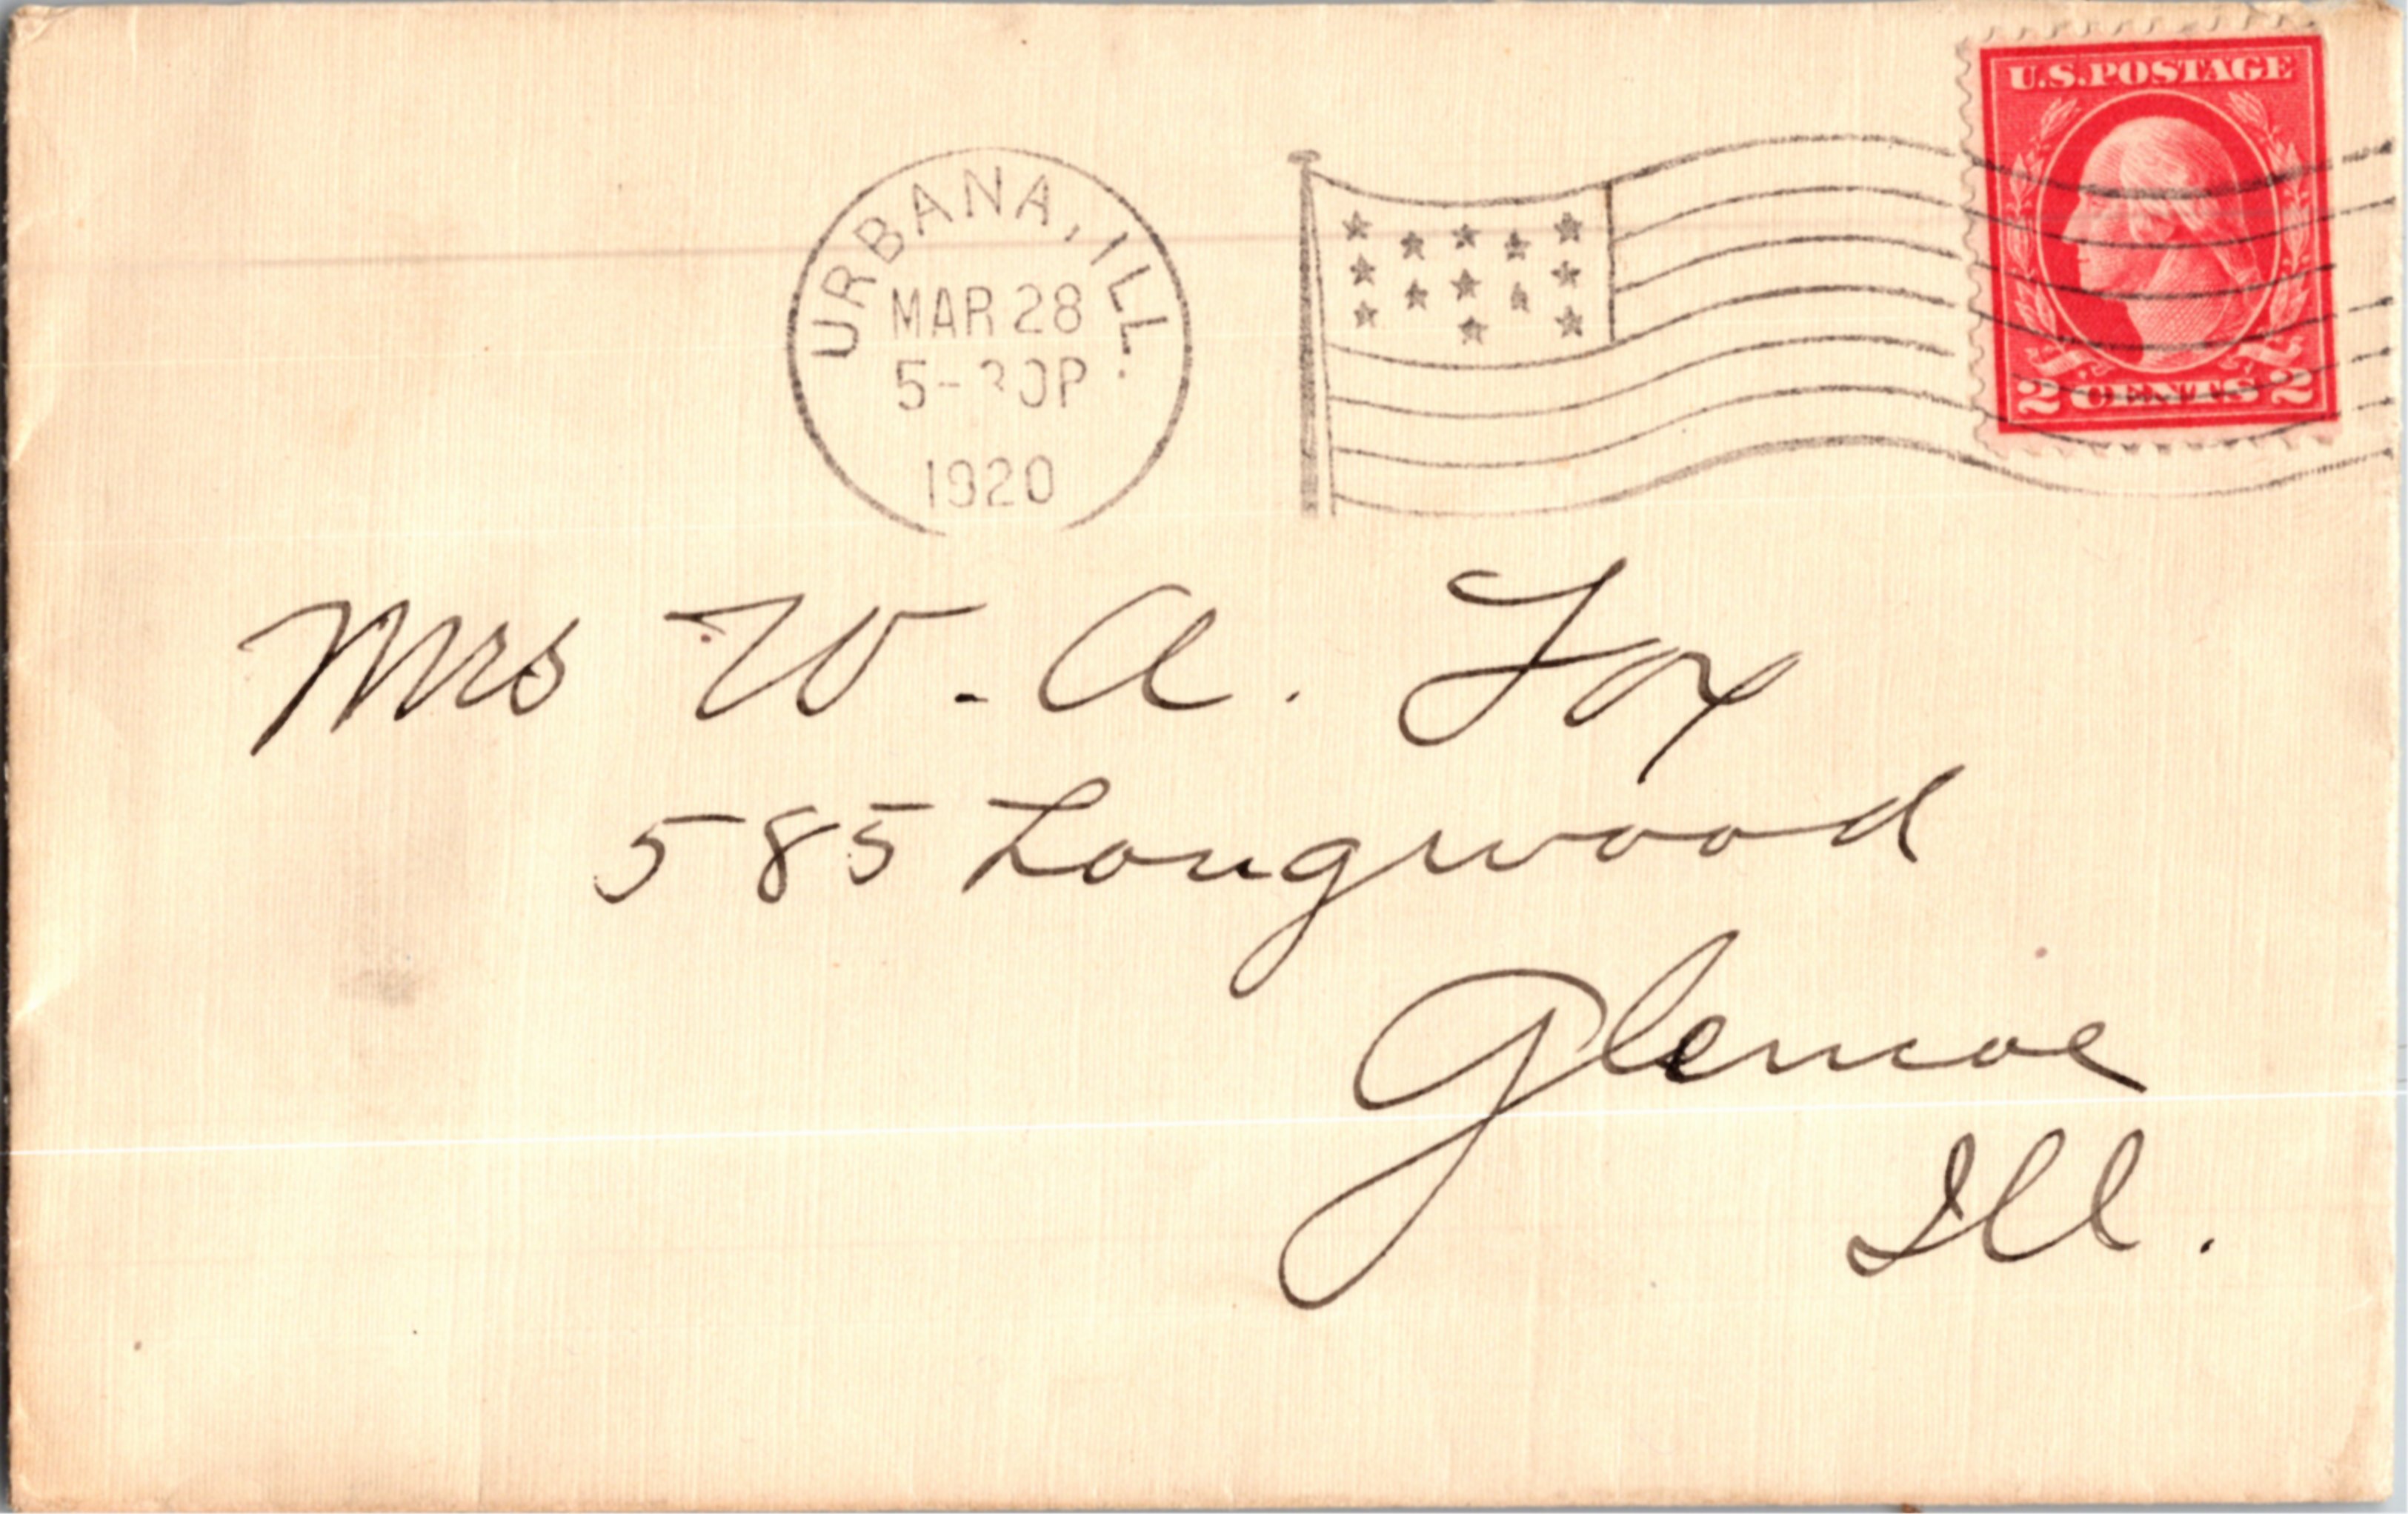 U.S. POSTAGE
2 CENTS 2
URBANA, ILL.
MAR 28
5-30P
1920
Mrs W. A. Fox
585 Longwood
Glencoe
Ill.